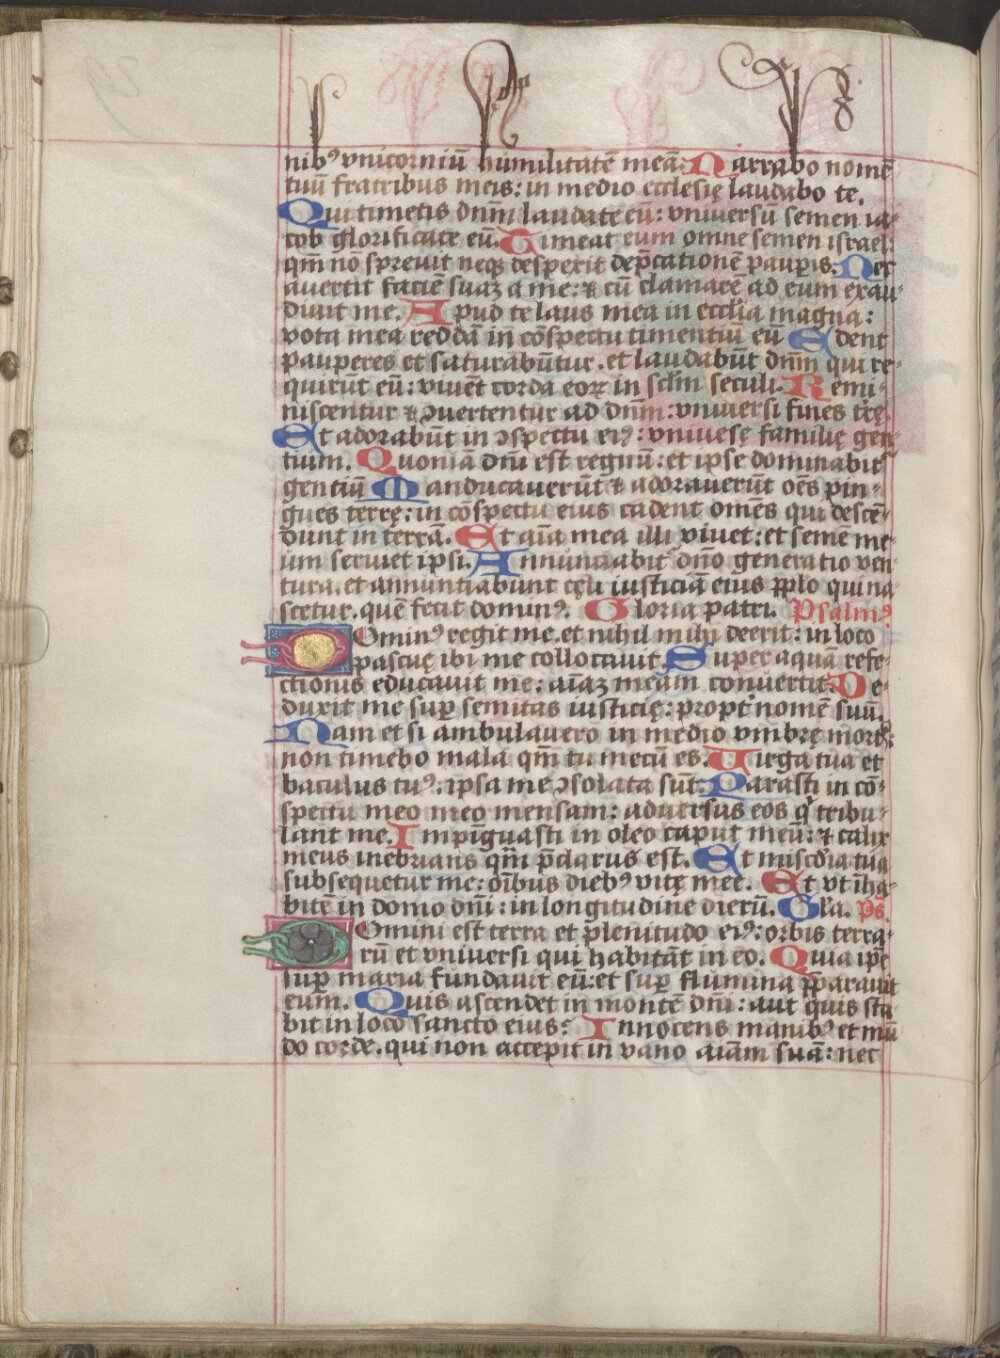 nibꝰ vnicorniū humilitatē meā: Narrabo nomē
tuū fratribus meis: in medio ecclesię laudabo te.
Qui timetis dn̄m laudate eū: vniuersū semen ia-
cob glorificate eū. Timeat eum omne semen israel:
qm̄ nō spreuit neqꝫ despexit dep̄cationē pauꝑis. Nec
auertit faciē suaꝫ a me: & cū clamarē ad eum exau-
diuit me. Apud te laus mea in eccl̄ia magna:
vota mea reddā in cōspectu timentiū eū Edent
pauperes et saturabūtur. et laudabūt dn̄m qui re-
quirūt eū: viuēt corda eoꝝ in scl̄m seculi. Remi-
niscentur & ꝯuertentur ad dn̄m: vniuersi fines tr̄ę.
Et adorabūt in ꝯspectu eiꝰ: vniuesę familię gen-
tium. Quoniā dn̄i est regnū: et ipse dominabit᷑
gentiū Manducauerūt & adorauerūt oēs pin-
gues terrę: in cōspectu eius cadent omēs qui descē-
dunt in terrā. Et aīa mea illi viuet: et semē me-
um seruiet ipsi. Annunciabit᷑ dn̄o generatio ven-
tura. et annuntiabunt cęli iusticiā eius pp̄lo qui na-
scetur. quē fecit dominꝰ. Gloria patri. Psalmꝰ
Dominꝰ regit me. et nihil mihi deerit: in loco
pascuę ibi me collocauit. Super aquā refe-
ctionis educauit me: aīaꝫ meam conuertit. De-
duxit me suꝑ semitas iusticię: propt̄ nomē suū.
Nam et si ambulauero in medio vmbrę mortꝭ:
non timebo mala qm̄ tu mecū es. Virga tua et
baculus tuꝰ: ip̄sa me ꝯsolata sūt. Parasti in cō-
spectu meo meo mensam: aduersus eos qͥ tribu-
lant me. Impīguasti in oleo caput meū: & calix
meus inebrians qm̄ p̄clarus est. Et mis͞cdia tua
subsequetur me: oībus diebꝰ vitę mee. Et vt īha-
bitē in domo dn̄i: in longitudine dierū. Gl̄a. Ps̄.
Domini est terra et plenitudo eiꝰ: orbis terra-
rū et vniuersi qui habitāt in eo. Quia ip̄e
suꝑ maria fundauit eū: et suꝑ flumina p̄ꝑarauit
eum. Quis ascendet in montē dn̄i: aut quis sta-
bit in loco sancto eius: Innocens manibꝰ et mū-
do corde. qui non accepit in vano aīam suā: nec